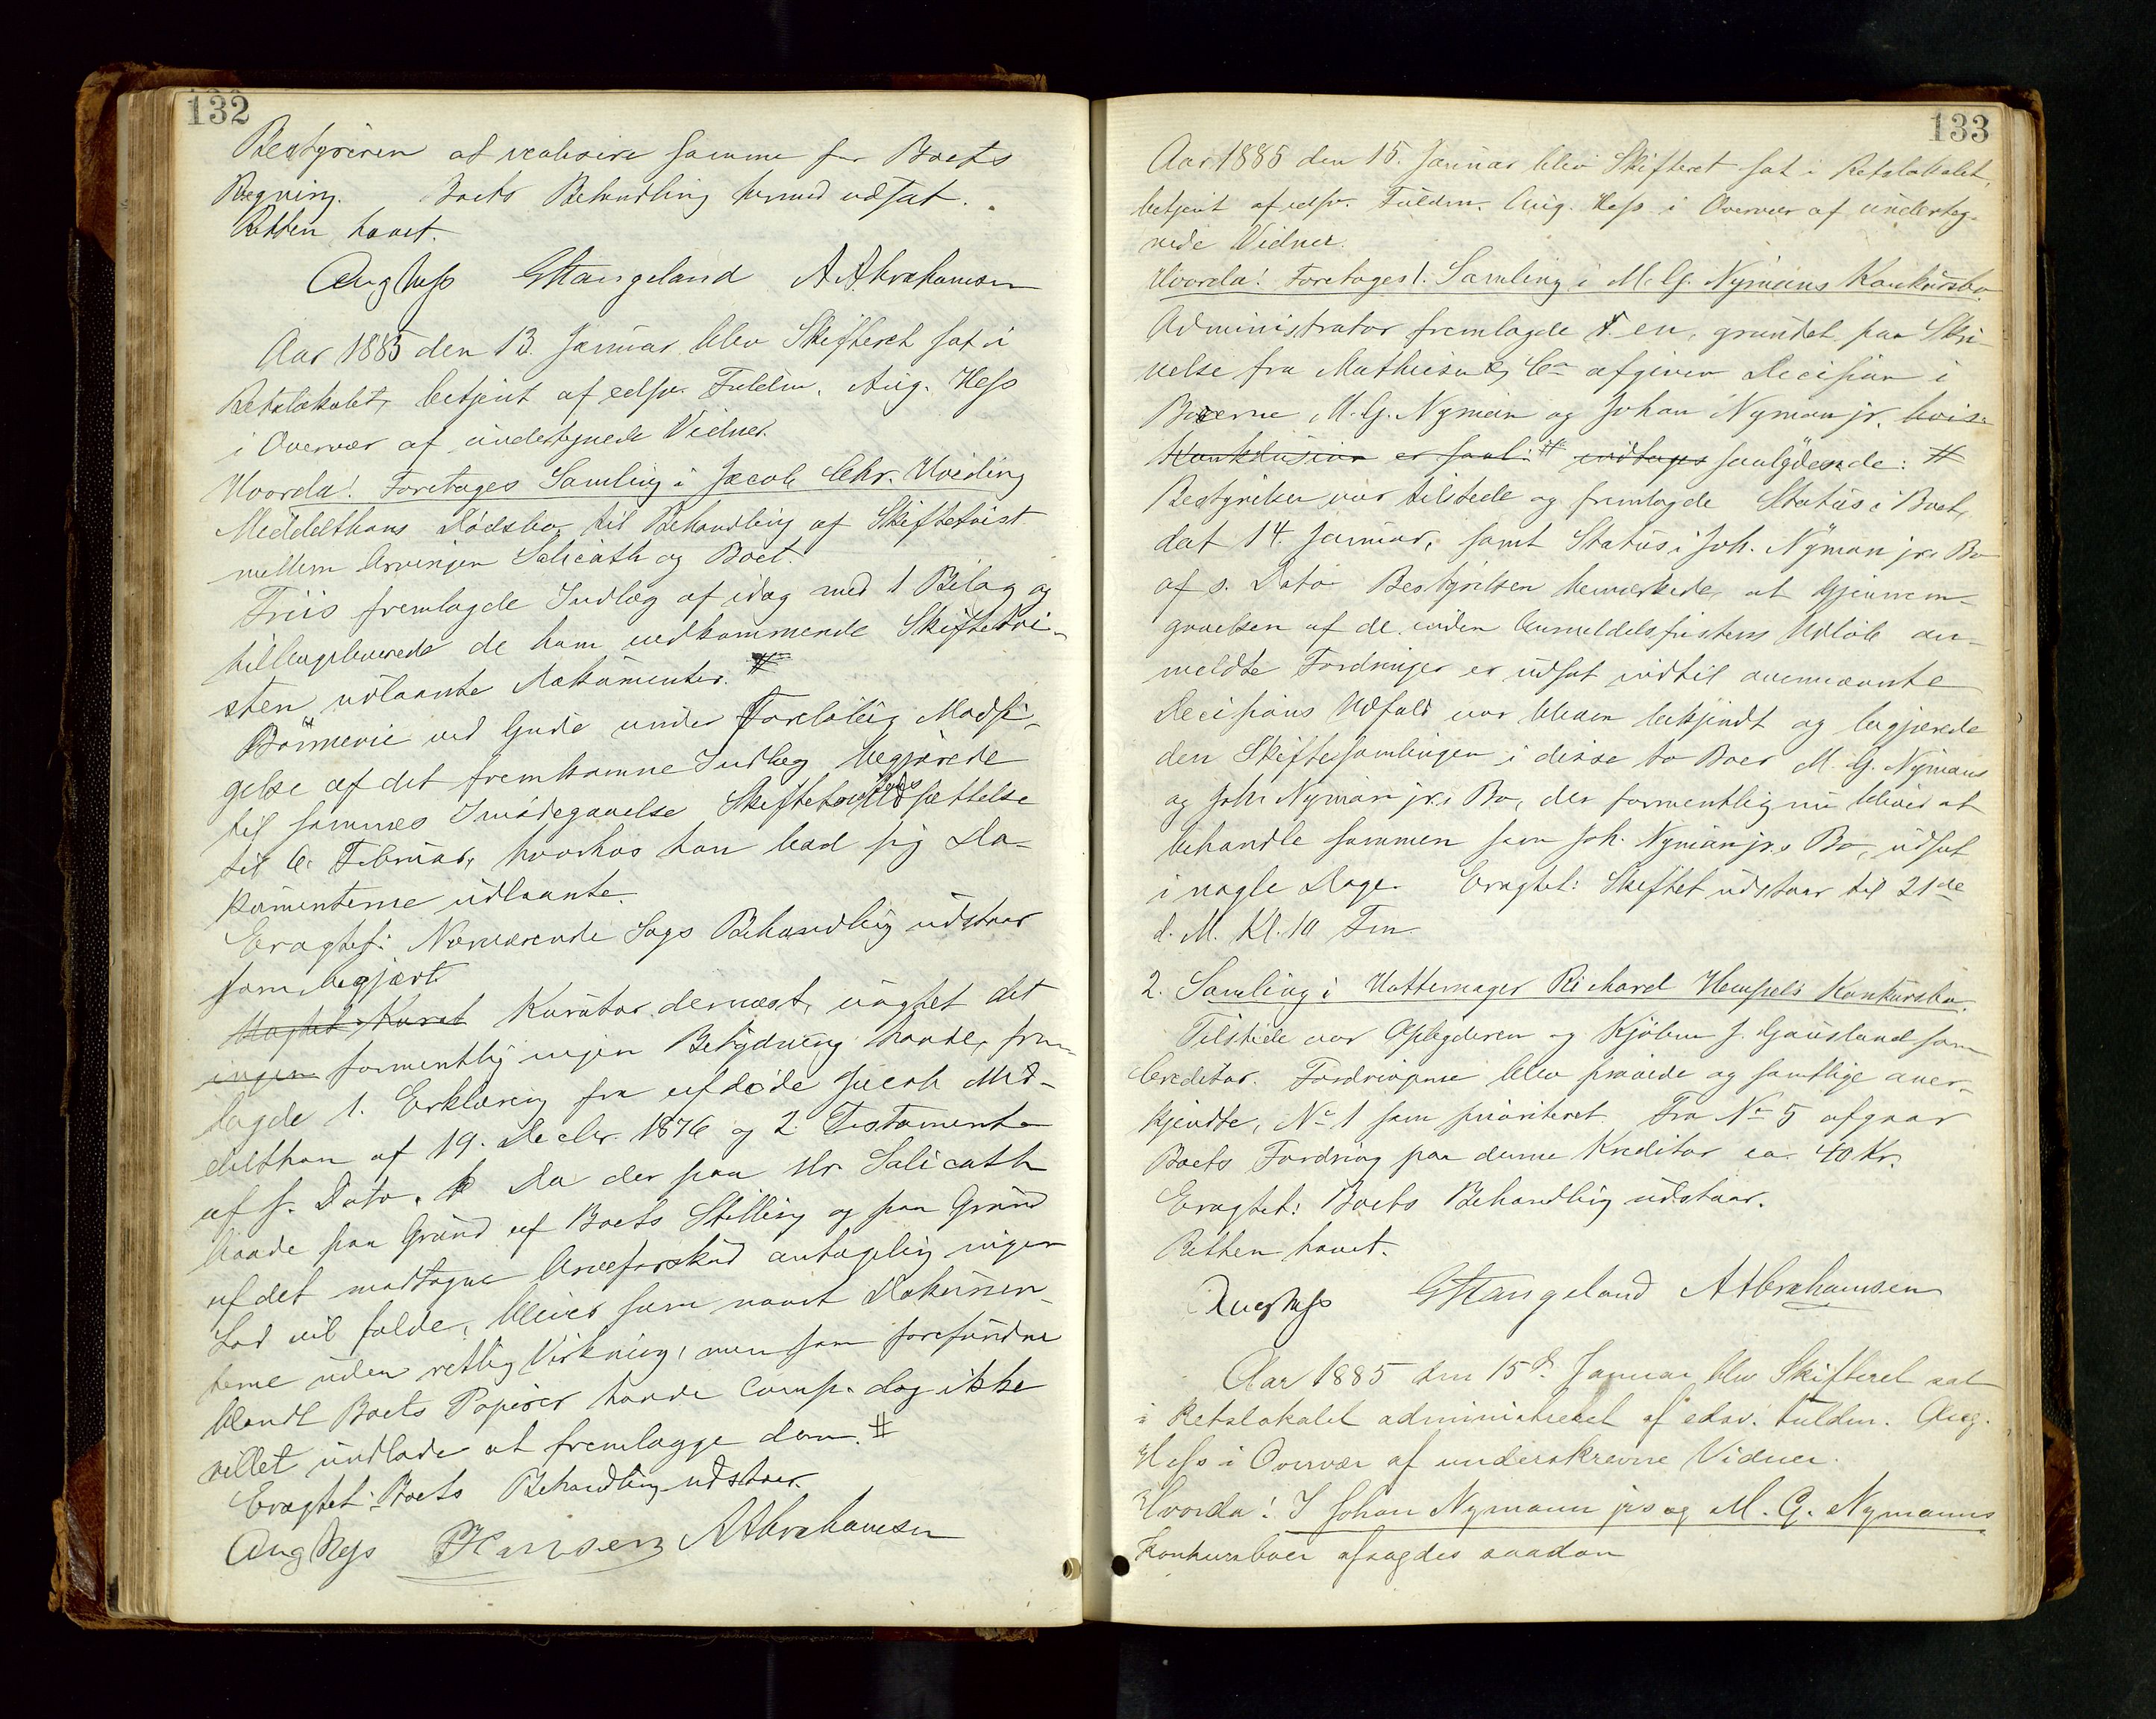 132
Bestyreren at realisere samme for Boets
Regning. Boets Behandling hermed udsat.
Retten hævet.
Aug Hess GStangeland AAbrahamsen
Aar 1885 den 13. Januar blev Skifteret sat i
Retslokalet, betjent af edsv. Fuldm. Aug. Hess
i Overvær af undertegnede Vidner.
Hvorda! Foretages Samling i Jacob Chr. Hvidling
Middelthons Dødsbo, til Behandling af Skiftetvist
mellem Arvingen Salicath og Boet.
Friis fremlagde Indlæg af idag med 1 Bilag og
tilbageleverede de ham vedkommende Skiftetvi-
sten udlaante Dokumenter. #
Børnevie ved Gude under Foreløbig Modsi-
gelse af det fremkomne Indlæg begjærede
til sammes Imødegaaelse Skiftetvistens Udsættelse
til 6. Februar, hvorhos han bad sig Do-
kumenterne udlaante.
Eragtet: Nærværende Sags Behandling udstaar
som begjært.
Kurator dernæst, uagtet det
ingen formentlig ingen Betydning havde, frem-
lagde 1. Erklæring fra afdøde Jacob Mid-
delthon af 19. Decbr. 1876 og 2. Testament
af s. Dato. Da der paa Hr Salicath
baade paa Grund af Boets Stilling og paa Grund
af det modtagne Arveforskud antagelig ingen
Lod vil falde, bliver som nævnt Dokumen-
terne uden retlig Virkning, men som forefundne
blandt Boets Papirer havde Comp. dog ikke
villet undlade at fremlægge dem. #
Eragtet: Boets Behandling udstaar.
Aug Hess Hansen AAbrahamsen
133
Aar 1885 den 15. Januar blev Skifteret sat i Retslokalet,
betjent af edsv. Fuldm. Aug. Hess i Overvær af underteg-
nede Vidner.
Hvorda! Foretages 1. Samling i M. G. Nymans Konkursbo.
Administrator fremlagde 1. en, grundet paa Skri-
velse fra Mathiesen & Co afgiven Decision i
Boerne M. G. Nyman og Johan Nyman jr. hvis
Konklusion er saal: # indtages saalydende: #
Bestyrelsen var tilstede og fremlagde Status i Boet,
dat 14. Januar, samt Status i Joh. Nyman jr.s Bo
af s. Dato. Bestyrelsen bemærkede, at Gjennem-
gaaelsen af de inden Anmeldelsfristens Udløb an-
meldte Fordringer er udsat indtil ovennævnte
Decisions Udfald var bleven bekjendt og begjærede
den Skiftesamlingen i disse to Boer M. G. Nymans
og Joh. Nyman jr.s Bo, der formentlig nu bliver at
behandle sammen som Joh. Nyman jr.s Bo, udsat
i nogle Dage. Eragtet: Skiftet udstaar til 21de
d. M. Kl. 10 Fm.
2. Samling i Hattemager Richard Hempels Konkursbo.
Tilstede var Opbyderen og Kjøbm J. Gausland som
Creditor. Fordringerne blev prøvede og samtlige aner-
kjendte, No 1 som prioriteret. Fra No 5 afgaar
Boets Fordring paa denne Kreditor ca. 40 Kr.
Eragtet: Boets Behandling udstaar.
Retten hævet.
Aug Hess GStangeland AAbrahamsen
Aar 1885 den 15de Januar blev Skifteret sat
i Retslokalet administreret af edsv. Fuldm. Aug.
Hess i Overvær af underskrevne Vidner.
Hvorda! I Johan Nymann jrs og M. G. Nymanns
Konkursboer afsagdes saadan